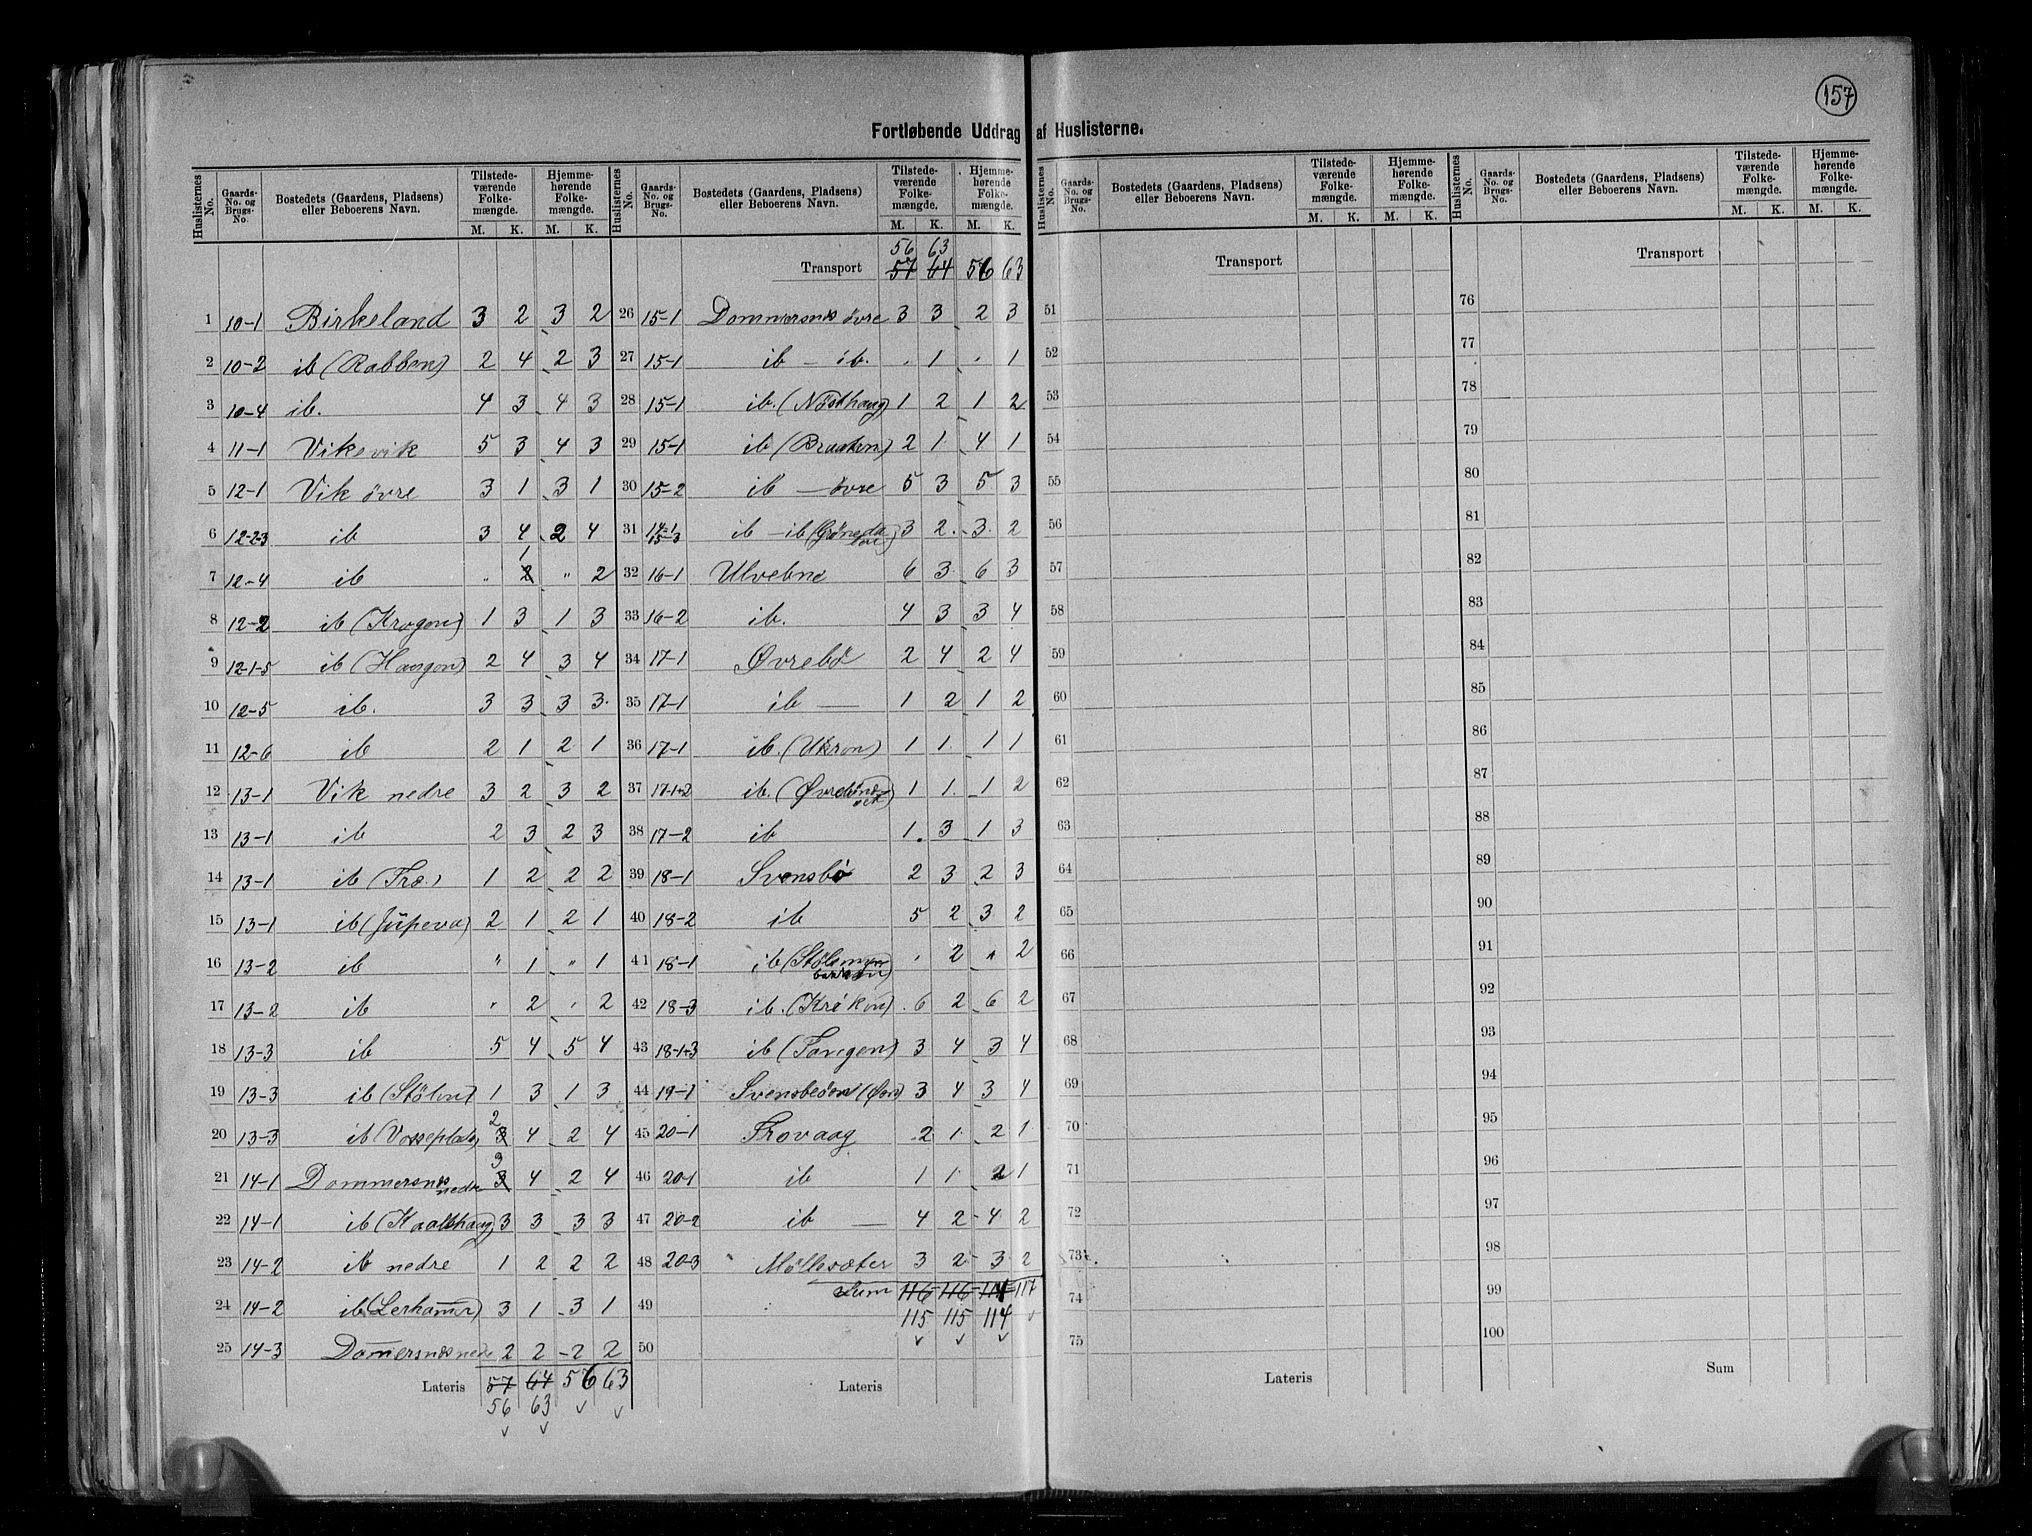 157
Fortløbende Uddrag af Huslisterne.
Huslisternes No. | Gaards-No. og Brugs-No. | Bostedets (Gaardens, Pladsens) eller Beboerens Navn. | Tilstedeværende Folkemængde. M. K. | Hjemmehørende Folkemængde. M. K.
1 10-1 Birkeland 3 2 3 2
2 10-2 ib (Rabben) 2 4 2 3
3 10-4 ib. 4 3 4 3
4 11-1 Viksvik 5 3 4 3
5 12-1 Vik övre 3 1 3 1
6 12-2-3 ib 3 4 2 4
7 12-4 ib " 1 " 2
8 12-2 ib (Krogen) 1 3 1 3
9 12-1-5 ib (Haugen) 2 4 3 4
10 12-5 ib. 3 3 3 3
11 12-6 ib 2 1 2 1
12 13-1 Vik nedre 3 2 3 2
13 13-1 ib 2 3 2 3
14 13-1 ib (Træ.) 1 2 2 2
15 13-1 ib 2 1 2 1
16 13-2 ib " 1 " 1
17 13-2 ib " 2 " 2
18 13-3 ib 5 4 5 4
19 13-3 ib (Stölen) 1 3 1 3
20 13-3 ib (Vosseplads) 2 4 2 4
21 14-1 Dommersnes nedre 3 4 2 4
22 14-1 ib (Kaalhaug) 3 3 3 3
23 14-2 ib nedre 1 2 2 2
24 14-2 ib (Lerhamr) 3 1 3 1
25 14-3 Domersnes nedre 2 2 2 2
Lateris 57 64 56 63
56 63
Huslisternes No. | Gaards-No. og Brugs-No. | Bostedets (Gaardens, Pladsens) eller Beboerens Navn. | Tilstedeværende Folkemængde. M. K. | Hjemmehørende Folkemængde. M. K.
56 63
Transport 57 64 56 63
26 15-1 Dommersnes övre 3 3 2 3
27 15-1 ib - ib. " 1 " 1
28 15-1 ib. (Nösthaug) 1 2 1 2
29 15-1 ib (Braaten) 2 1 4 1
30 15-2 ib - övre 5 3 5 3
31 14-1 15-3 ib - ib 3 2 3 2
32 16-1 Ulvebne 6 3 6 3
33 16-2 ib. 4 3 3 4
34 17-1 Øvrebö 2 4 2 4
35 17-1 ib — 1 2 1 2
36 17-1 ib. (Ukron) 1 1 1 1
37 17-1+2 ib. 1 1 1 2
38 17-2 ib 1 3 1 3
39 18-1 Svensbö 2 3 2 3
40 18-2 ib 5 2 3 2
41 18-1 ib " 2 " 2
42 18-3 ib. (Kröken) 6 2 6 2
43 18-1+3 ib (Tangen) 3 4 3 4
44 19-1 3 4 3 4
45 20-1 Trovaag 2 1 2 1
46 20-1 ib 1 1 2 1
47 20-2 ib — 4 2 4 2
48 20-3 Möllesæter 3 2 3 2
49 Sum 116 116 114 117
115 115 114
50
Lateris
Huslisternes No. | Gaards-No. og Brugs-No. | Bostedets (Gaardens, Pladsens) eller Beboerens Navn. | Tilstedeværende Folkemængde. M. K. | Hjemmehørende Folkemængde. M. K.
Transport
51
52
53
54
55
56
57
58
59
60
61
62
63
64
65
66
67
68
69
70
71
72
73
74
75
Lateris
Huslisternes No. | Gaards-No. og Brugs-No. | Bostedets (Gaardens, Pladsens) eller Beboerens Navn. | Tilstedeværende Folkemængde. M. K. | Hjemmehørende Folkemængde. M. K.
Transport
76
77
78
79
80
81
82
83
84
85
86
87
88
89
90
91
92
93
94
95
96
97
98
99
100
Sum